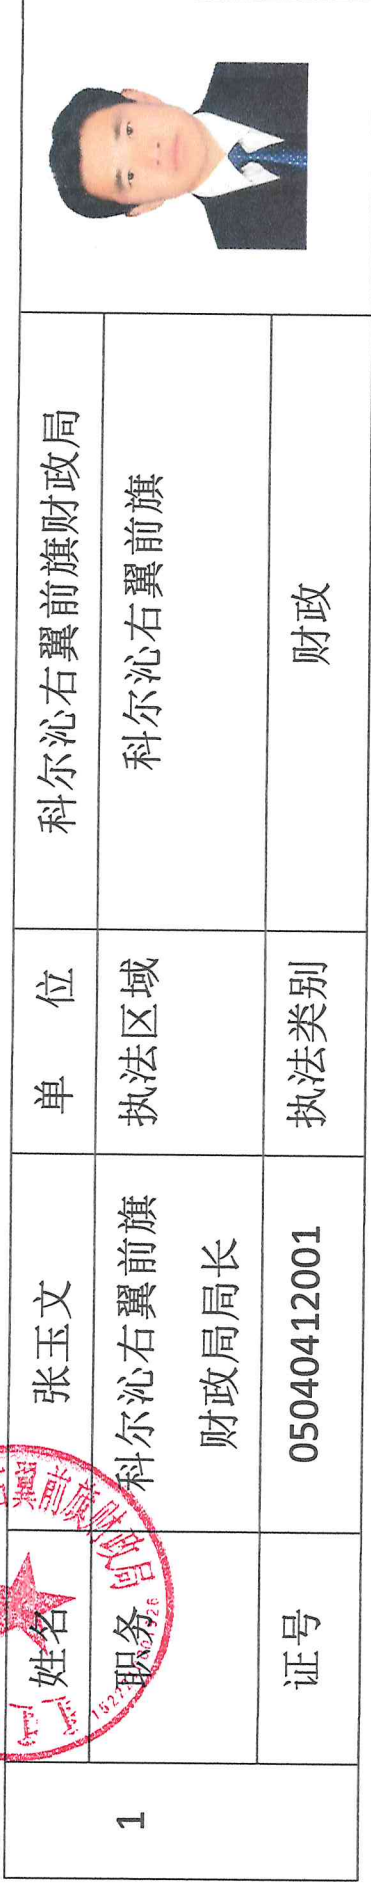 1
姓名
张玉文
单 位
科尔沁右翼前旗财政局
职务
科尔沁右翼前旗
财政局局长
执法区域
科尔沁右翼前旗
证号
05040412001
执法类别
财政
翼前旗财政局